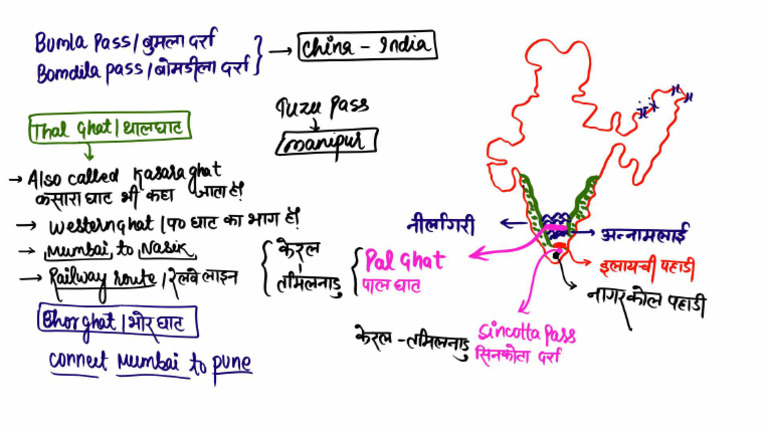 Bumla Pass/बुमला दर्रा
Bomdila pass/बोमडीला दर्रा
China - India
Tuzu Pass
manipur
Thal Ghat/थालघाट
→ Also called Kasaraghat
कसारा घाट भी कहा जाता है।
→ Westernghat/प० घाट का भाग है।
→ Mumbai, to Nasik
→ Railway route/रेलवे लाइन
Bhorghat/भोर घाट
connect Mumbai to pune
केरल
तमिलनाडु
Pal Ghat
पाल घाट
केरल - तमिलनाडु
Sincotta Pass
सिनकोटा दर्रा
नीलगिरी
अन्नामलाई
इलायची पहाडी
नागरकोल पहाडी